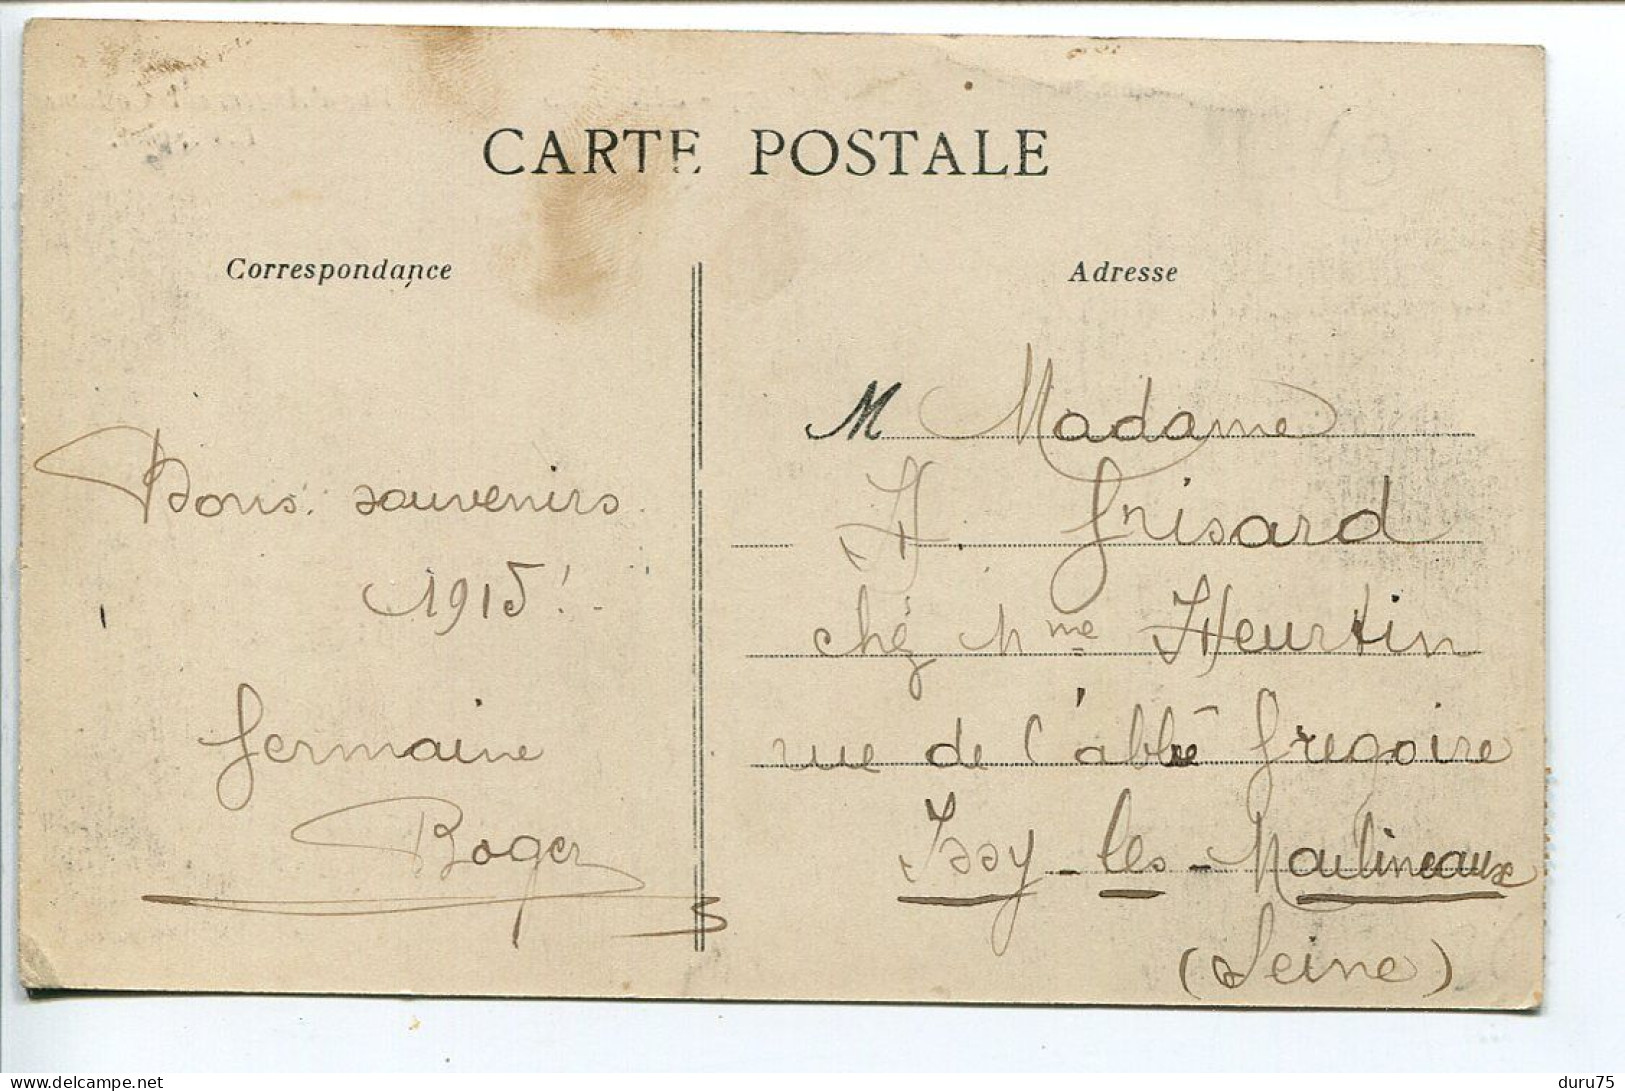 CARTE POSTALE
Correspondance
Bons souvenirs
1915!
Germaine
Roger
Adresse
M Madame
A. Grisard
chez Mme Heurtin
rue de l'abbé Gregoire
Issy-les-Moulineaux
(Seine)
duru75